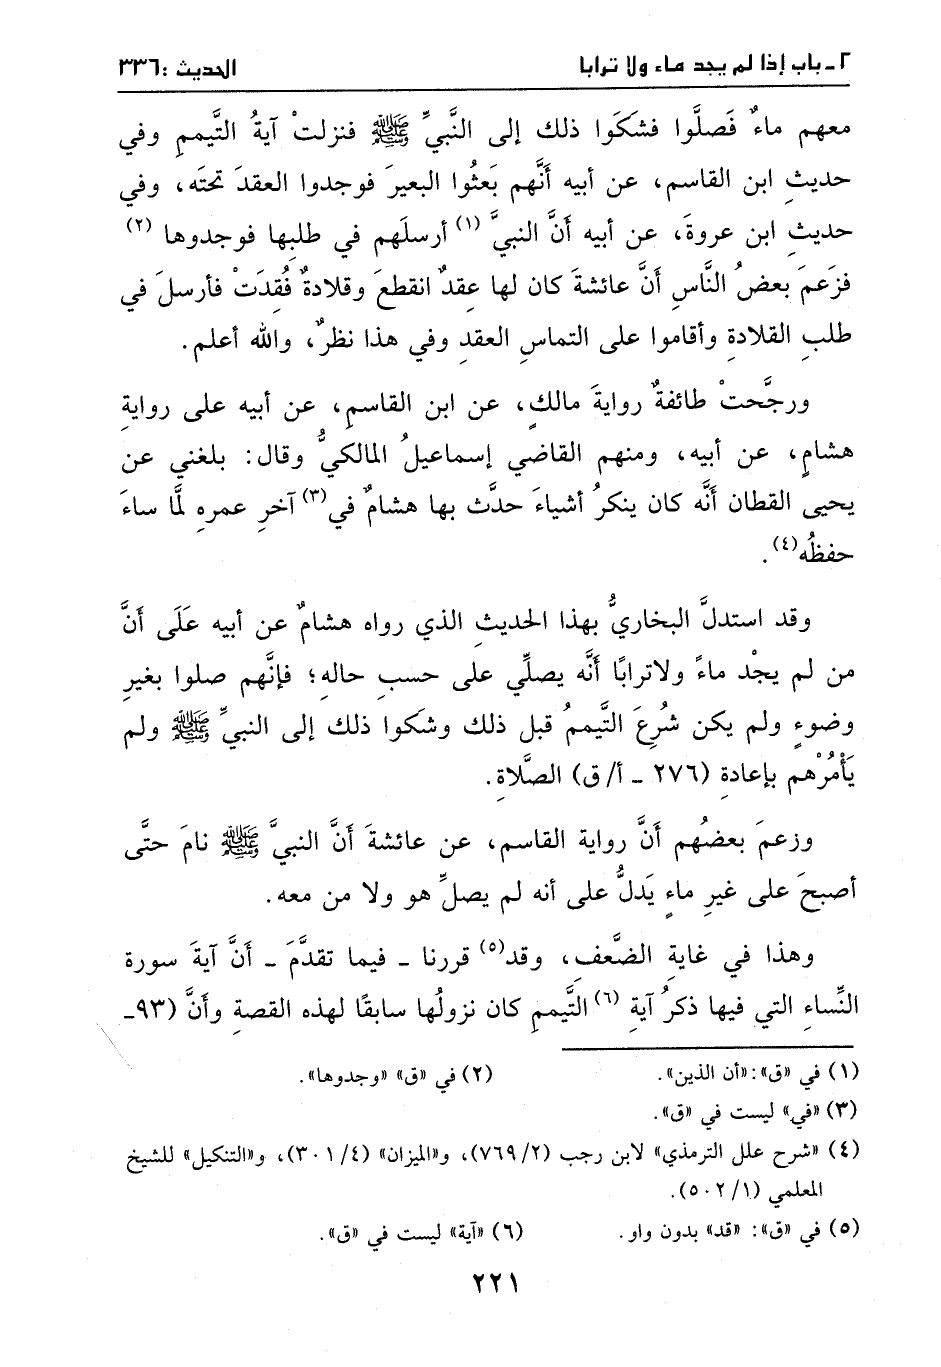 ٢ـ باب إذا لم يجد ماء ولا ترابا
الحديث :٣٣٦
معهم ماءٌ فَصلَّوا فشكَوا ذلك إلى النَّبيِّ ﷺ فنزلتْ آيةُ التَّيممِ وفي
حديثِ ابن القاسمِ، عن أبيه أنَّهم بَعثُوا البعيرَ فوجدوا العقدَ تحتَه، وفي
حديثِ ابن عروةَ، عن أبيه أنَّ النبيَّ (١) أرسلَهم في طلبِها فوجدوها (٢)
فزَعمَ بعضُ النَّاسِ أنَّ عائشةَ كان لها عِقدٌ انقطعَ وقلادةٌ فُقِدَتْ فأرسلَ في
طلبِ القلادةِ وأقاموا على التماسِ العقدِ وفي هذا نظرٌ، والله أعلم.
ورجَّحتْ طائفةٌ روايةَ مالكٍ، عن ابن القاسمِ، عن أبيه على روايةِ
هشامٍ، عن أبيه، ومنهم القاضي إسماعيلُ المالكيُّ وقال: بلغني عن
يحيى القطان أنَّه كان ينكرُ أشياءَ حدَّث بها هشامٌ في(٣) آخرِ عمرهِ لمَّا ساءَ
حفظُه(٤).
وقد استدلَّ البخاريُّ بهذا الحديثِ الذي رواه هشامٌ عن أبيه عَلَى أَنَّ
من لم يجْد ماءً ولاترابًا أنَّه يصلِّي على حسبِ حالهِ؛ فإنَّهم صلوا بغيرِ
وضوءٍ ولم يكن شُرِعَ التَّيممُ قبل ذلك وشكَوا ذلك إلى النبيِّ ﷺ ولم
يَأْمُرْهم بإعادةِ (٢٧٦ ـ أ/ ق) الصَّلاةِ.
وزعمَ بعضُهم أنَّ رواية القاسم، عن عائشةَ أنَّ النبيَّ ﷺ نامَ حتَّى
أصبحَ على غيرِ ماءٍ يَدلُّ على أنه لم يصلِّ هو ولا من معه.
وهذا في غايةِ الضَّعفِ، وقد(٥) قررنا ـ فيما تقدَّمَ ـ أنَّ آيةَ سورة
النِّساءِ التي فيها ذكرُ آيةِ (٦) التَّيممِ كان نزولُها سابقًا لهذه القصةِ وأنَّ (٩٣ـ
(١) في «ق»: «أن الذين».
(٢) في «ق» «وجدوها».
(٣) «في» ليست في «ق».
(٤) «شرح علل الترمذي» لابن رجب (٧٦٩/٢)، و«الميزان» (٣٠١/٤)، و«التنكيل» للشيخ
المعلمي (٥٠٢/١).
(٥) في «ق»: «قد» بدون واو.
(٦) «آية» ليست في «ق».
٢٢١